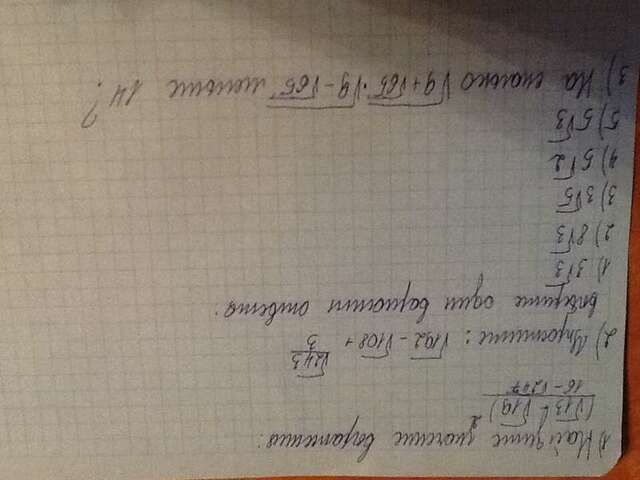 1) Найдите значение выражения:
(√13 - √19)²
16 - √247
2) Упростите: √192 - √108 + √243/3
выберите один вариант ответа:
1) 3√3
2) 8√3
3) 3√5
4) 5√2
5) 5√3
3) На сколько √9+√65 · √9-√65 меньше 14?